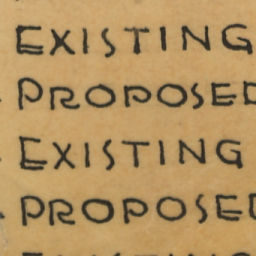 EXISTING
PROPOSED
EXISTING
PROPOSED